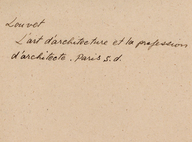 Louvet
L'art d'architecture et la profession
d'architecte. Paris s.d.